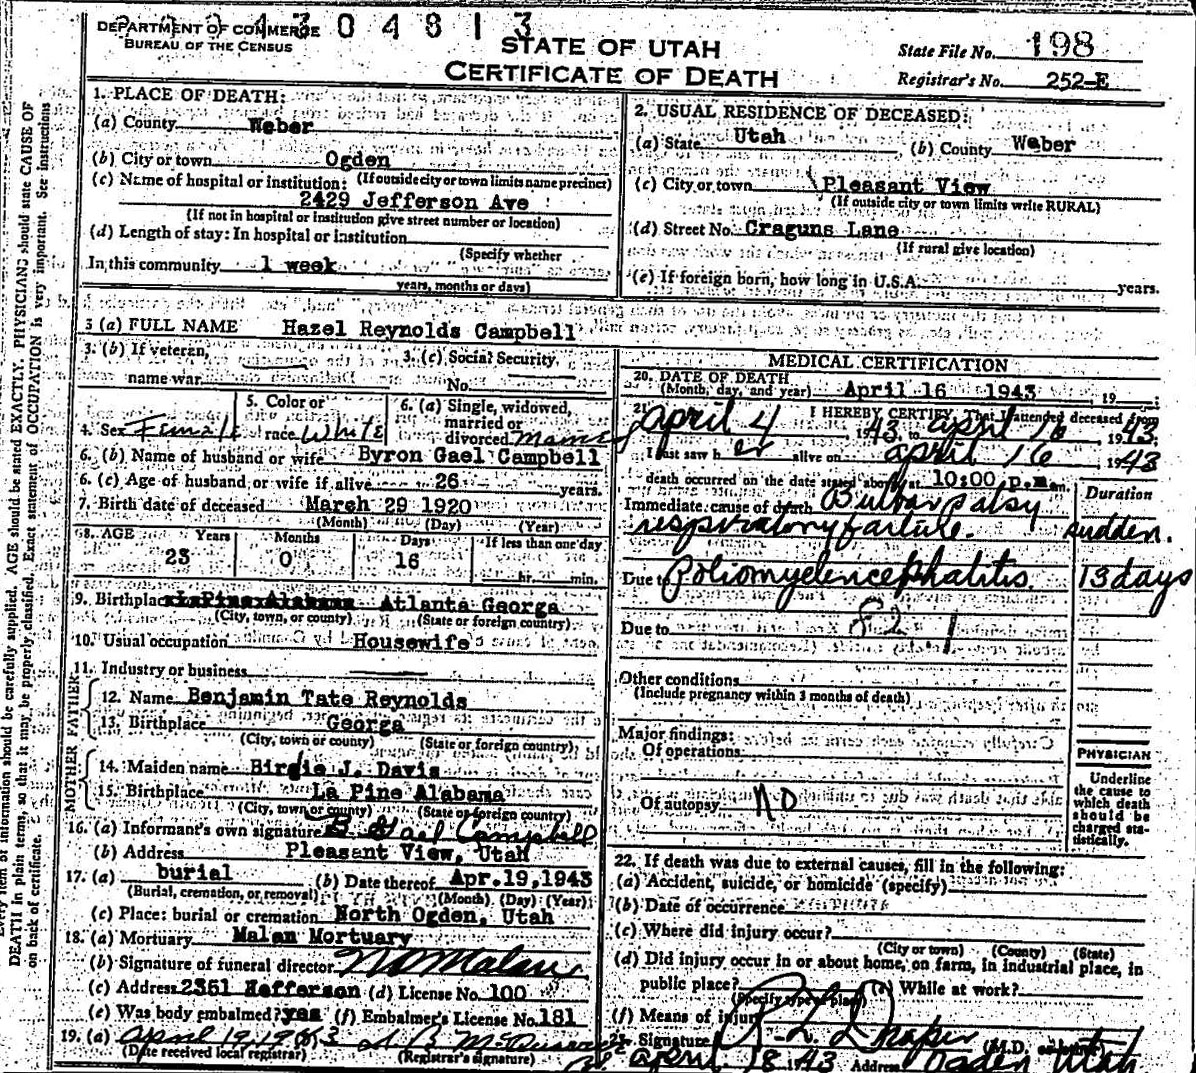 DEPARTMENT OF COMMERCE
BUREAU OF THE CENSUS
04813
STATE OF UTAH
CERTIFICATE OF DEATH
State File No. 198
Registrar's No. 252-E
1. PLACE OF DEATH:
(a) County Weber
(b) City or town Ogden
(If outside city or town limits name precinct)
(c) Name of hospital or institution:
2429 Jefferson Ave
(If not in hospital or institution give street number or location)
(d) Length of stay: In hospital or institution
(Specify whether
In this community 1 week
years, months or days)
2. USUAL RESIDENCE OF DECEASED:
(a) State Utah (b) County Weber
(c) City or town Pleasant View
(If outside city or town limits write RURAL)
(d) Street No. Craguns Lane
(If rural give location)
(e) If foreign born, how long in U.S.A. years.
3 (a) FULL NAME Hazel Reynolds Campbell
3. (b) If veteran, name war
3. (c) Social Security No.
4. Sex Female
5. Color or race White
6. (a) Single, widowed, married or divorced
6. (b) Name of husband or wife Byron Gael Campbell
6. (c) Age of husband or wife if alive 26 years.
7. Birth date of deceased March 29 1920
(Month) (Day) (Year)
8. AGE Years Months Days If less than one day
23 0 16 hr. min.
9. Birthplace Atlanta Georga
(City, town, or county) (State or foreign country)
10. Usual occupation Housewife
11. Industry or business
FATHER
12. Name Benjamin Tate Reynolds
13. Birthplace Georga
(City, town or county) (State or foreign country)
MOTHER
14. Maiden name Birgie J. Davis
15. Birthplace La Pine Alabama
(City, town or county) (State or foreign country)
16. (a) Informant's own signature B. Gael Campbell
(b) Address Pleasant View, Utah
17. (a) burial (b) Date thereof Apr.19,1943
(Burial, cremation, or removal) (Month) (Day) (Year)
(c) Place: burial or cremation North Ogden, Utah
18. (a) Mortuary Malan Mortuary
(b) Signature of funeral director N O Malan
(c) Address 2351 Jefferson (d) License No. 100
(e) Was body embalmed? yes (f) Embalmer's License No. 181
19. (a) April 19, 1943
(Date received local registrar) (Registrar's signature)
MEDICAL CERTIFICATION
20. DATE OF DEATH
(Month, day, and year) April 16 1943 19
21. I HEREBY CERTIFY, That I attended deceased from
April 4 1943 to April 16, 1943
I last saw her alive on April 16 1943
death occurred on the date stated above at 10:00 p.m.
Duration
Immediate cause of death Bulbar palsy
respiratory failure. sudden.
Due to Poliomyelencephalitis. 13 days
82.1
Due to
Other conditions
(Include pregnancy within 3 months of death)
Major findings:
Of operations
Of autopsy NO
PHYSICIAN
Underline
the cause to
which death
should be
charged sta-
tistically.
22. If death was due to external causes, fill in the following:
(a) Accident, suicide, or homicide (specify)
(b) Date of occurrence
(c) Where did injury occur?
(City or town) (County) (State)
(d) Did injury occur in or about home, on farm, in industrial place, in
public place? (e) While at work?
(Specify type of place)
(f) Means of injury
Signature R. L. Draper (M.D.
April 18 1943 Address Ogden Utah
information should be carefully supplied. AGE should be stated EXACTLY. PHYSICIANS should state CAUSE OF
DEATH in plain terms, so that it may be properly classified. Exact statement of OCCUPATION is very important. See instructions
on back of certificate.